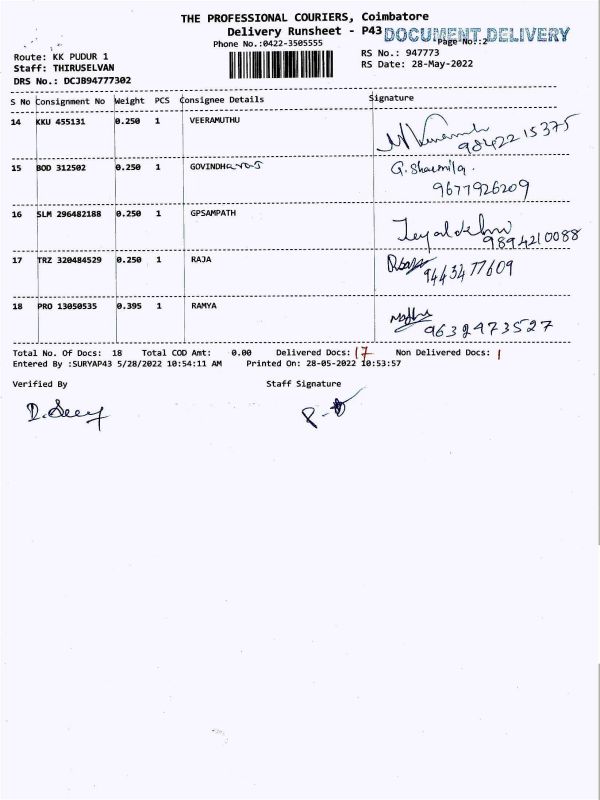 THE PROFESSIONAL COURIERS, Coimbatore
Delivery Runsheet - P43 DOCUMENT DELIVERY
Phone No.:0422-3505555 Page No.:2
Route: KK PUDUR 1 RS No.: 947773
Staff: THIRUSELVAN RS Date: 28-May-2022
DRS No.: DCJB94777302
S No Consignment No Weight PCS Consignee Details Signature
14 KKU 455131 0.250 1 VEERAMUTHU
9842215375
15 BOD 312502 0.250 1 GOVINDHARAJ G. Sharmila.
9677926209
16 SLM 296482188 0.250 1 GPSAMPATH
9894210088
17 TRZ 320484529 0.250 1 RAJA
9443477609
18 PRO 13050535 0.395 1 RAMYA
9632973527
Total No. Of Docs: 18 Total COD Amt: 0.00 Delivered Docs: 17 Non Delivered Docs: 1
Entered By :SURYAP43 5/28/2022 10:54:11 AM Printed On: 28-05-2022 10:53:57
Verified By Staff Signature